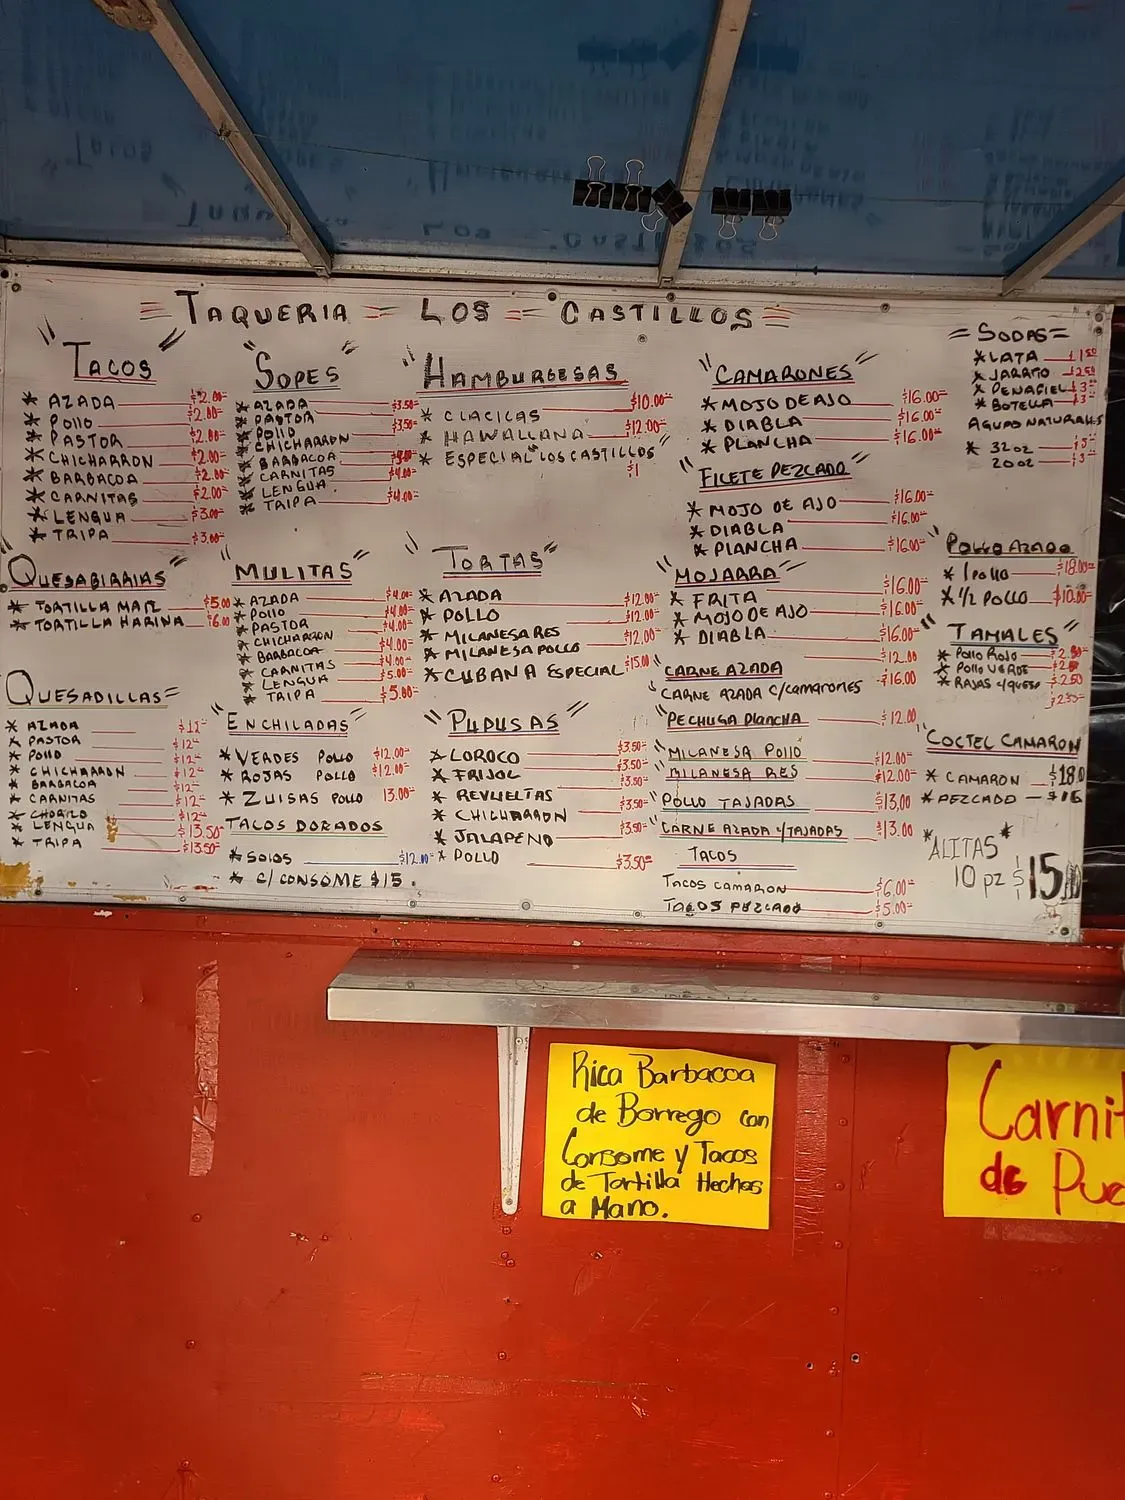 TAQUERIA LOS CASTILLOS
"TACOS"
* AZADA $2.00
* POLLO $2.00
* PASTOR $2.00
* CHICHARRON $2.00
* BARBACOA $2.00
* CARNITAS $2.00
* LENGUA $3.00
* TRIPA $3.00
"QUESABIRRIAS"
* TORTILLA MAIZ $5.00
* TORTILLA HARINA $6.00
QUESADILLAS=
* AZADA $12
* PASTOR $12
* POLLO $12
* CHICHARRON $12
* BARBACOA $12
* CARNITAS $12
* CHORIZO $12
* LENGUA $13.50
* TRIPA $13.50
"SOPES"
* AZADA $3.50
* PASTOR $3.50
* POLLO
* CHICHARRON
* BARBACOA
* CARNITAS $4.00
* LENGUA
* TRIPA $4.00
"MULITAS"
* AZADA $4.00
* POLLO $4.00
* PASTOR $4.00
* CHICHARRON $4.00
* BARBACOA $4.00
* CARNITAS $5.00
* LENGUA
* TRIPA $5.00
"ENCHILADAS"
* VERDES POLLO $12.00
* ROJAS POLLO $12.00
* ZUISAS POLLO 13.00
TACOS DORADOS
* SOLOS $12.00
* C/CONSOME $15.
"HAMBURGESAS
* CLACICAS $10.00
* HAWALLANA $12.00
* ESPECIAL LOS CASTILLOS"
$1
"TORTAS"
* AZADA $12.00
* POLLO $12.00
* MILANESA RES $12.00
* MILANESA POLLO
* CUBANA ESPECIAL $15.00
"PUPUSAS"
* LOROCO $3.50
* FRIJOL $3.50
* REVUELTAS $3.50
* CHICHARRON $3.50
* JALAPENO $3.50
* POLLO $3.50
"CAMARONES"
* MOJO DE AJO $16.00
* DIABLA $16.00
* PLANCHA $16.00
"FILETE PEZCADO"
* MOJO DE AJO $16.00
* DIABLA $16.00
* PLANCHA $16.00
"MOJARRA"
* FRITA $16.00
* MOJO DE AJO $16.00
* DIABLA $16.00
"CARNE AZADA $12.00
"CARNE AZADA C/camarones $16.00
"PECHUGA PlanCHA $12.00
"MILANESA POLLO $12.00
"MILANESA RES $12.00
"POLLO TAJADAS $13.00
"CARNE AZADA Y/TAJADAS $13.00
TACOS
TACOS CAMARON $6.00
TACOS PEZCADO $5.00
=SODAS=
* LATA $1.50
* JARRITO $2.50
* PENAFIEL $3
* BOTELLA $3
AGUAS NATURALES
* 32oz $5
20oz $3
"POLLO AZADO
* 1 POLLO $18.00
* 1/2 POLLO $10.00
"TAMALES"
* POLLO ROJO $2.50
* POLLO VERDE $2.50
* RAJAS Y/QUESO $2.50
$2.50
"COCTEL CAMARON
* CAMARON $18.0
* PEZCADO $16
"ALITAS"
10 pz $15.00
Rica Barbacoa
de Borrego con
Consome y Tacos
de Tortilla Hechas
a Mano.
Carnit
de Pue